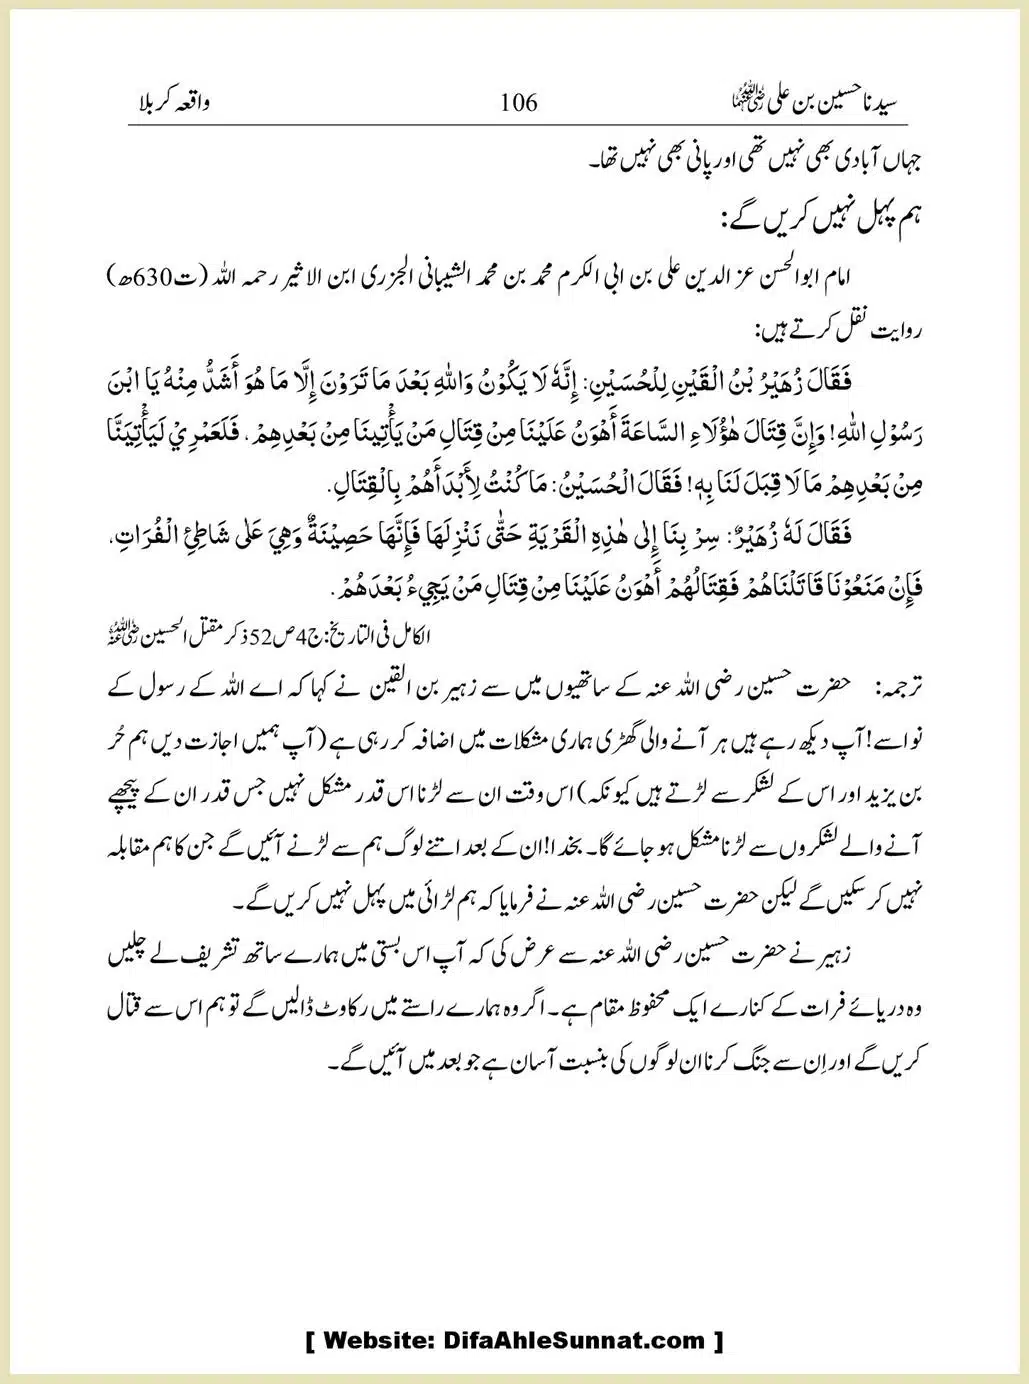 سیدنا حسین بن علی رضی اللہ عنہما 106 واقعہ کربلا
جہاں آبادی بھی نہیں تھی اور پانی بھی نہیں تھا۔
ہم پہل نہیں کریں گے:
امام ابوالحسن عز الدین علی بن ابی الکرم محمد بن محمد الشیبانی الجزری ابن الاثیر رحمہ اللہ (ت630ھ)
روایت نقل کرتے ہیں:
فَقَالَ زُهَيْرُ بْنُ الْقَيْنِ لِلْحُسَيْنِ: إِنَّهٗ لَا يَكُوْنُ وَاللهِ بَعْدَ مَا تَرَوْنَ إِلَّا مَا هُوَ أَشَدُّ مِنْهُ يَا ابْنَ
رَسُوْلِ اللهِ! وَإِنَّ قِتَالَ هٰؤُلَاءِ السَّاعَةَ أَهْوَنُ عَلَيْنَا مِنْ قِتَالِ مَنْ يَأْتِينَا مِنْ بَعْدِهِمْ، فَلَعَمْرِيْ لَيَأْتِيَنَّا
مِنْ بَعْدِهِمْ مَا لَا قِبَلَ لَنَا بِهٖ! فَقَالَ الْحُسَيْنُ: مَا كُنْتُ لِأَبْدَأَهُمْ بِالْقِتَالِ.
فَقَالَ لَهٗ زُهَيْرٌ: سِرْ بِنَا إِلٰى هٰذِهِ الْقَرْيَةِ حَتّٰى نَنْزِلَهَا فَإِنَّهَا حَصِيْنَةٌ وَهِيَ عَلٰى شَاطِئِ الْفُرَاتِ،
فَإِنْ مَنَعُوْنَا قَاتَلْنَاهُمْ فَقِتَالُهُمْ أَهْوَنُ عَلَيْنَا مِنْ قِتَالِ مَنْ يَجِيءُ بَعْدَهُمْ.
الکامل فی التاریخ: ج4 ص52 ذکر مقتل الحسین رضی اللہ عنہ
ترجمہ: حضرت حسین رضی اللہ عنہ کے ساتھیوں میں سے زہیر بن القین نے کہا کہ اے اللہ کے رسول کے
نواسے! آپ دیکھ رہے ہیں ہر آنے والی گھڑی ہماری مشکلات میں اضافہ کر رہی ہے (آپ ہمیں اجازت دیں ہم حُر
بن یزید اور اس کے لشکر سے لڑتے ہیں کیونکہ) اس وقت ان سے لڑنا اس قدر مشکل نہیں جس قدر ان کے پیچھے
آنے والے لشکروں سے لڑنا مشکل ہو جائے گا۔ بخدا! ان کے بعد اتنے لوگ ہم سے لڑنے آئیں گے جن کا ہم مقابلہ
نہیں کر سکیں گے لیکن حضرت حسین رضی اللہ عنہ نے فرمایا کہ ہم لڑائی میں پہل نہیں کریں گے۔
زہیر نے حضرت حسین رضی اللہ عنہ سے عرض کی کہ آپ اس بستی میں ہمارے ساتھ تشریف لے چلیں
وہ دریائے فرات کے کنارے ایک محفوظ مقام ہے۔ اگر وہ ہمارے راستے میں رکاوٹ ڈالیں گے تو ہم اس سے قتال
کریں گے اور اِن سے جنگ کرنا ان لوگوں کی بنسبت آسان ہے جو بعد میں آئیں گے۔
[ Website: DifaAhleSunnat.com ]